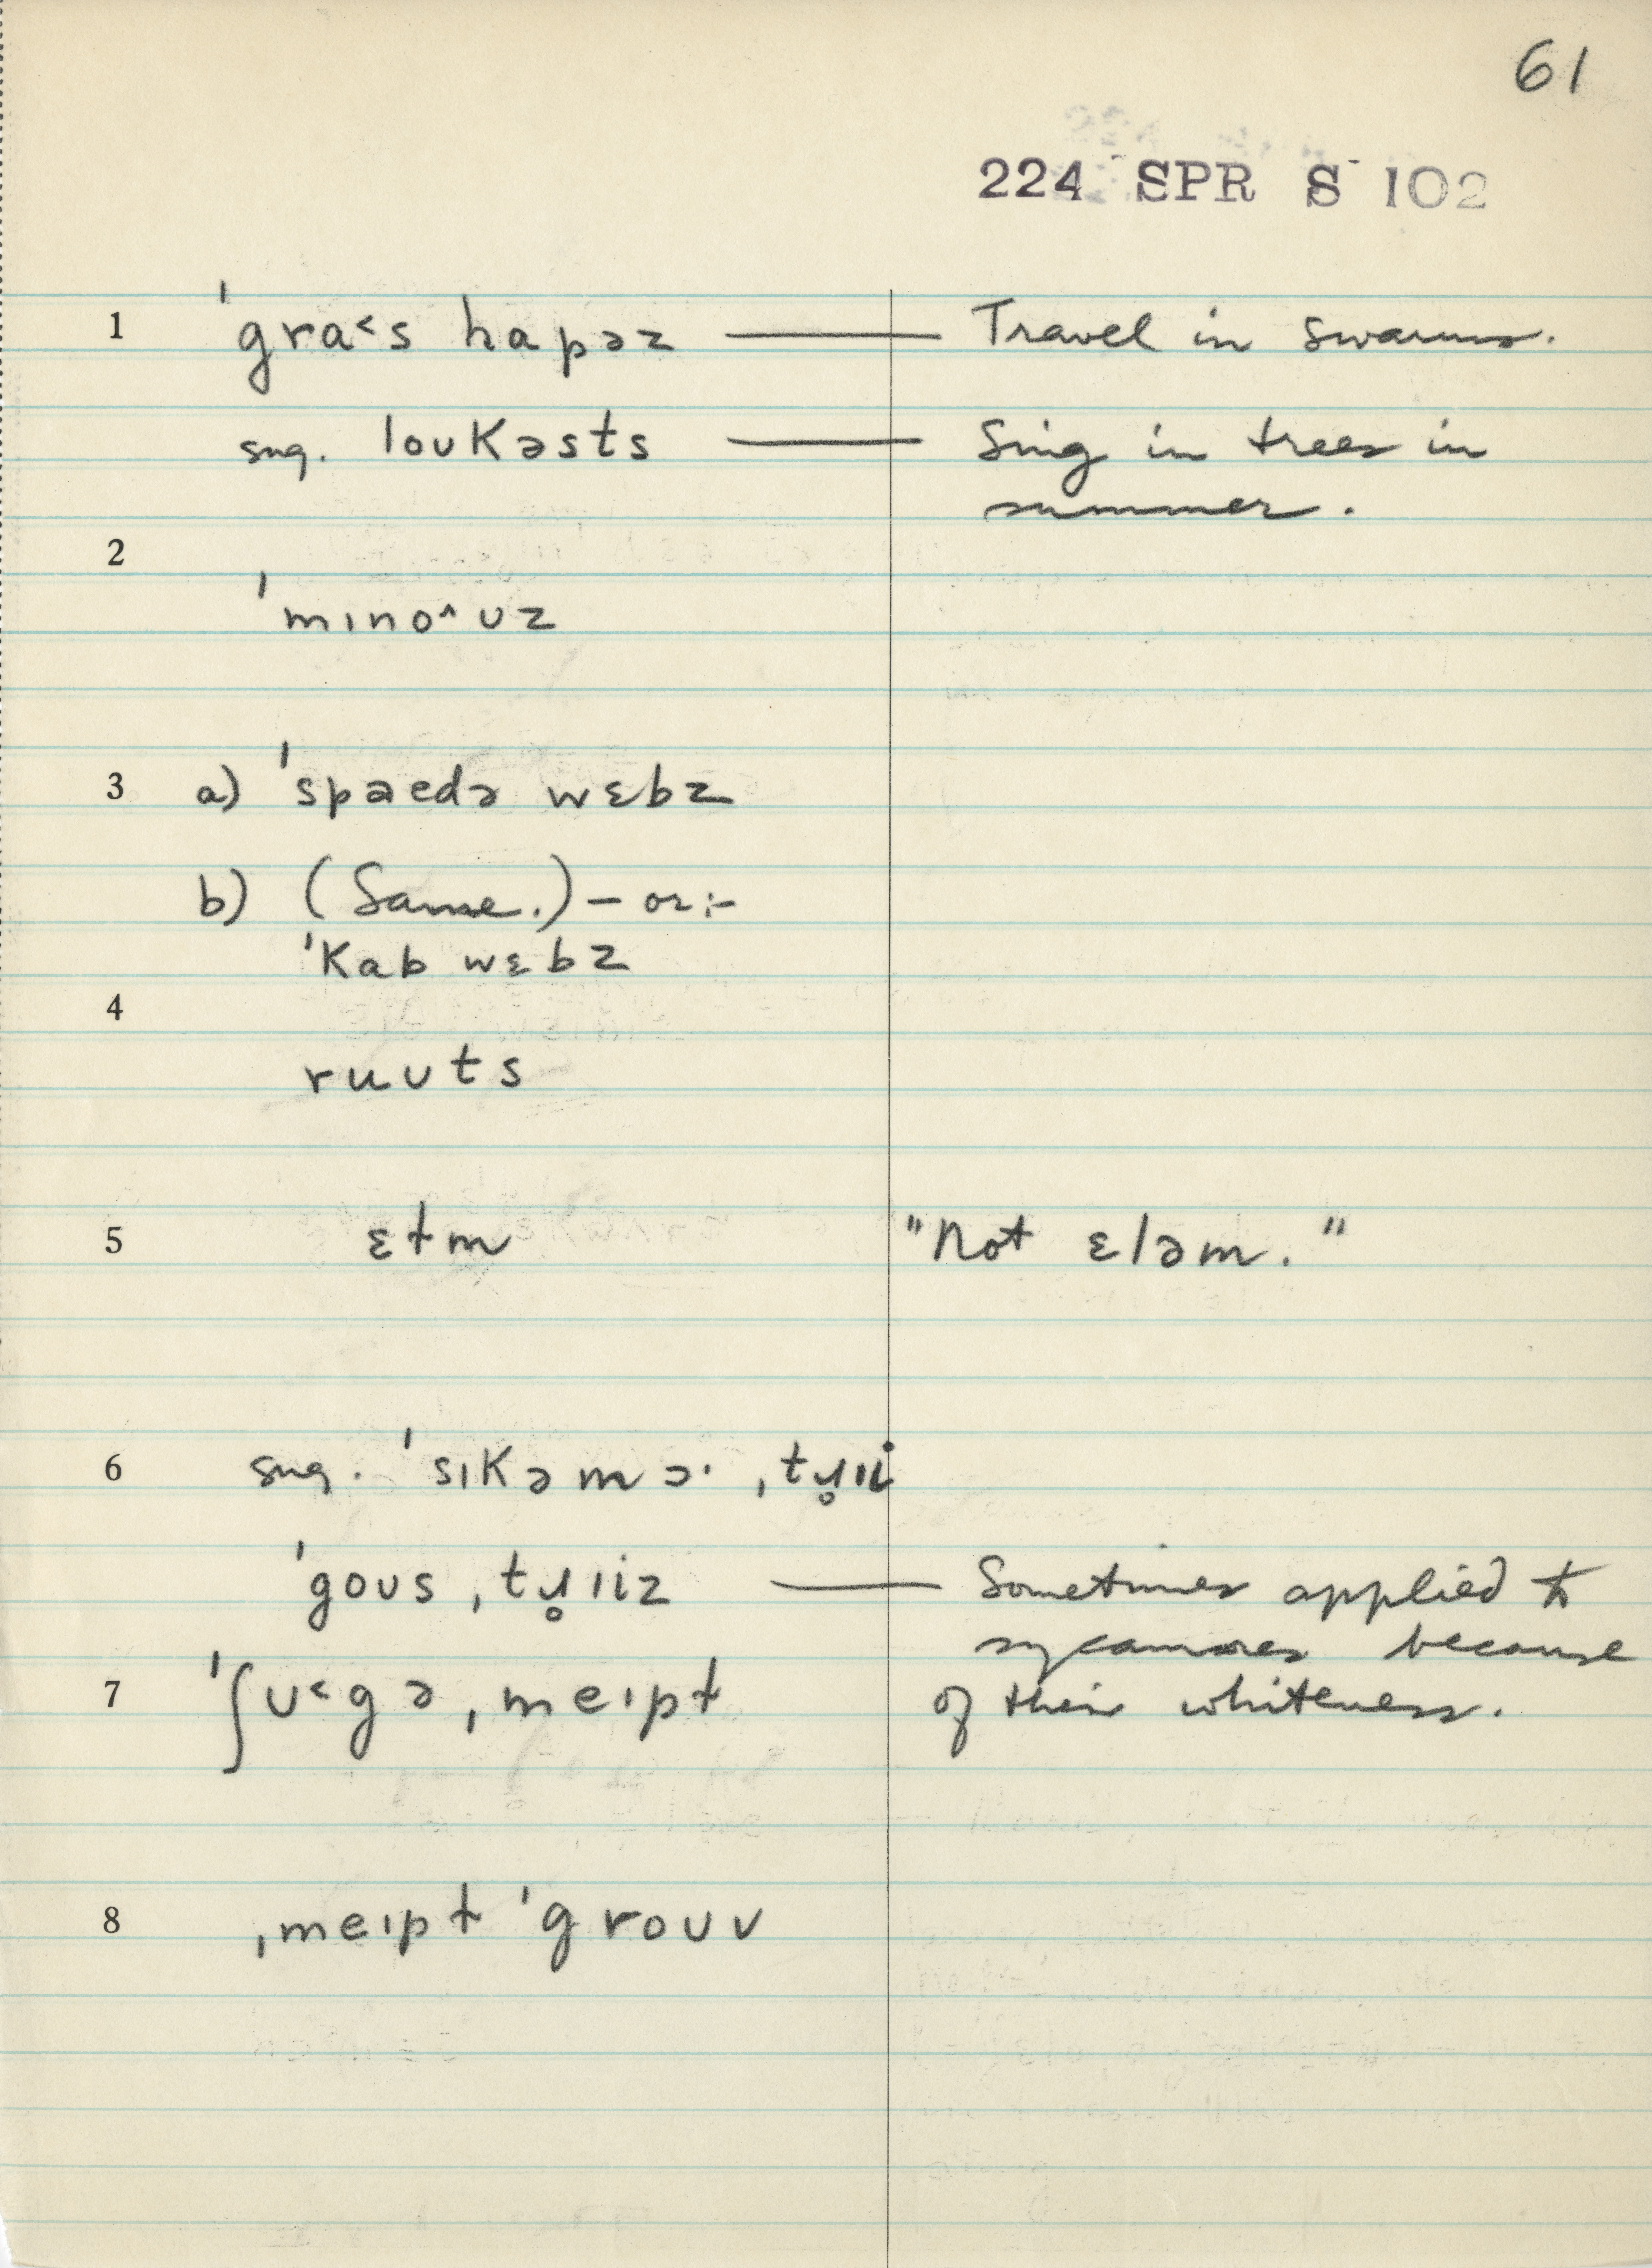 61
224 SPR S 102
1 ˈgra˂s hapəz — Travel in swarms.
sug. loʊkəsts — Sing in trees in
summer.
2
ˈmɪno^ʊz
3 a) ˈspaedə wɛbz
b) (Same.) – or:-
ˈkab wɛbz
4
ruʊts
5 ɛɫm "Not ɛləm."
6 sug. ˈsɪkəmɔ· ˌtɹ̥ɪi
ˈgoʊs ˌtɹ̥ɪiz — Sometimes applied to
sycamores because
7 ˈʃʊ˂gə ˌmeɪpɫ of their whiteness.
8 ˌmeɪpɫ ˈgroʊv